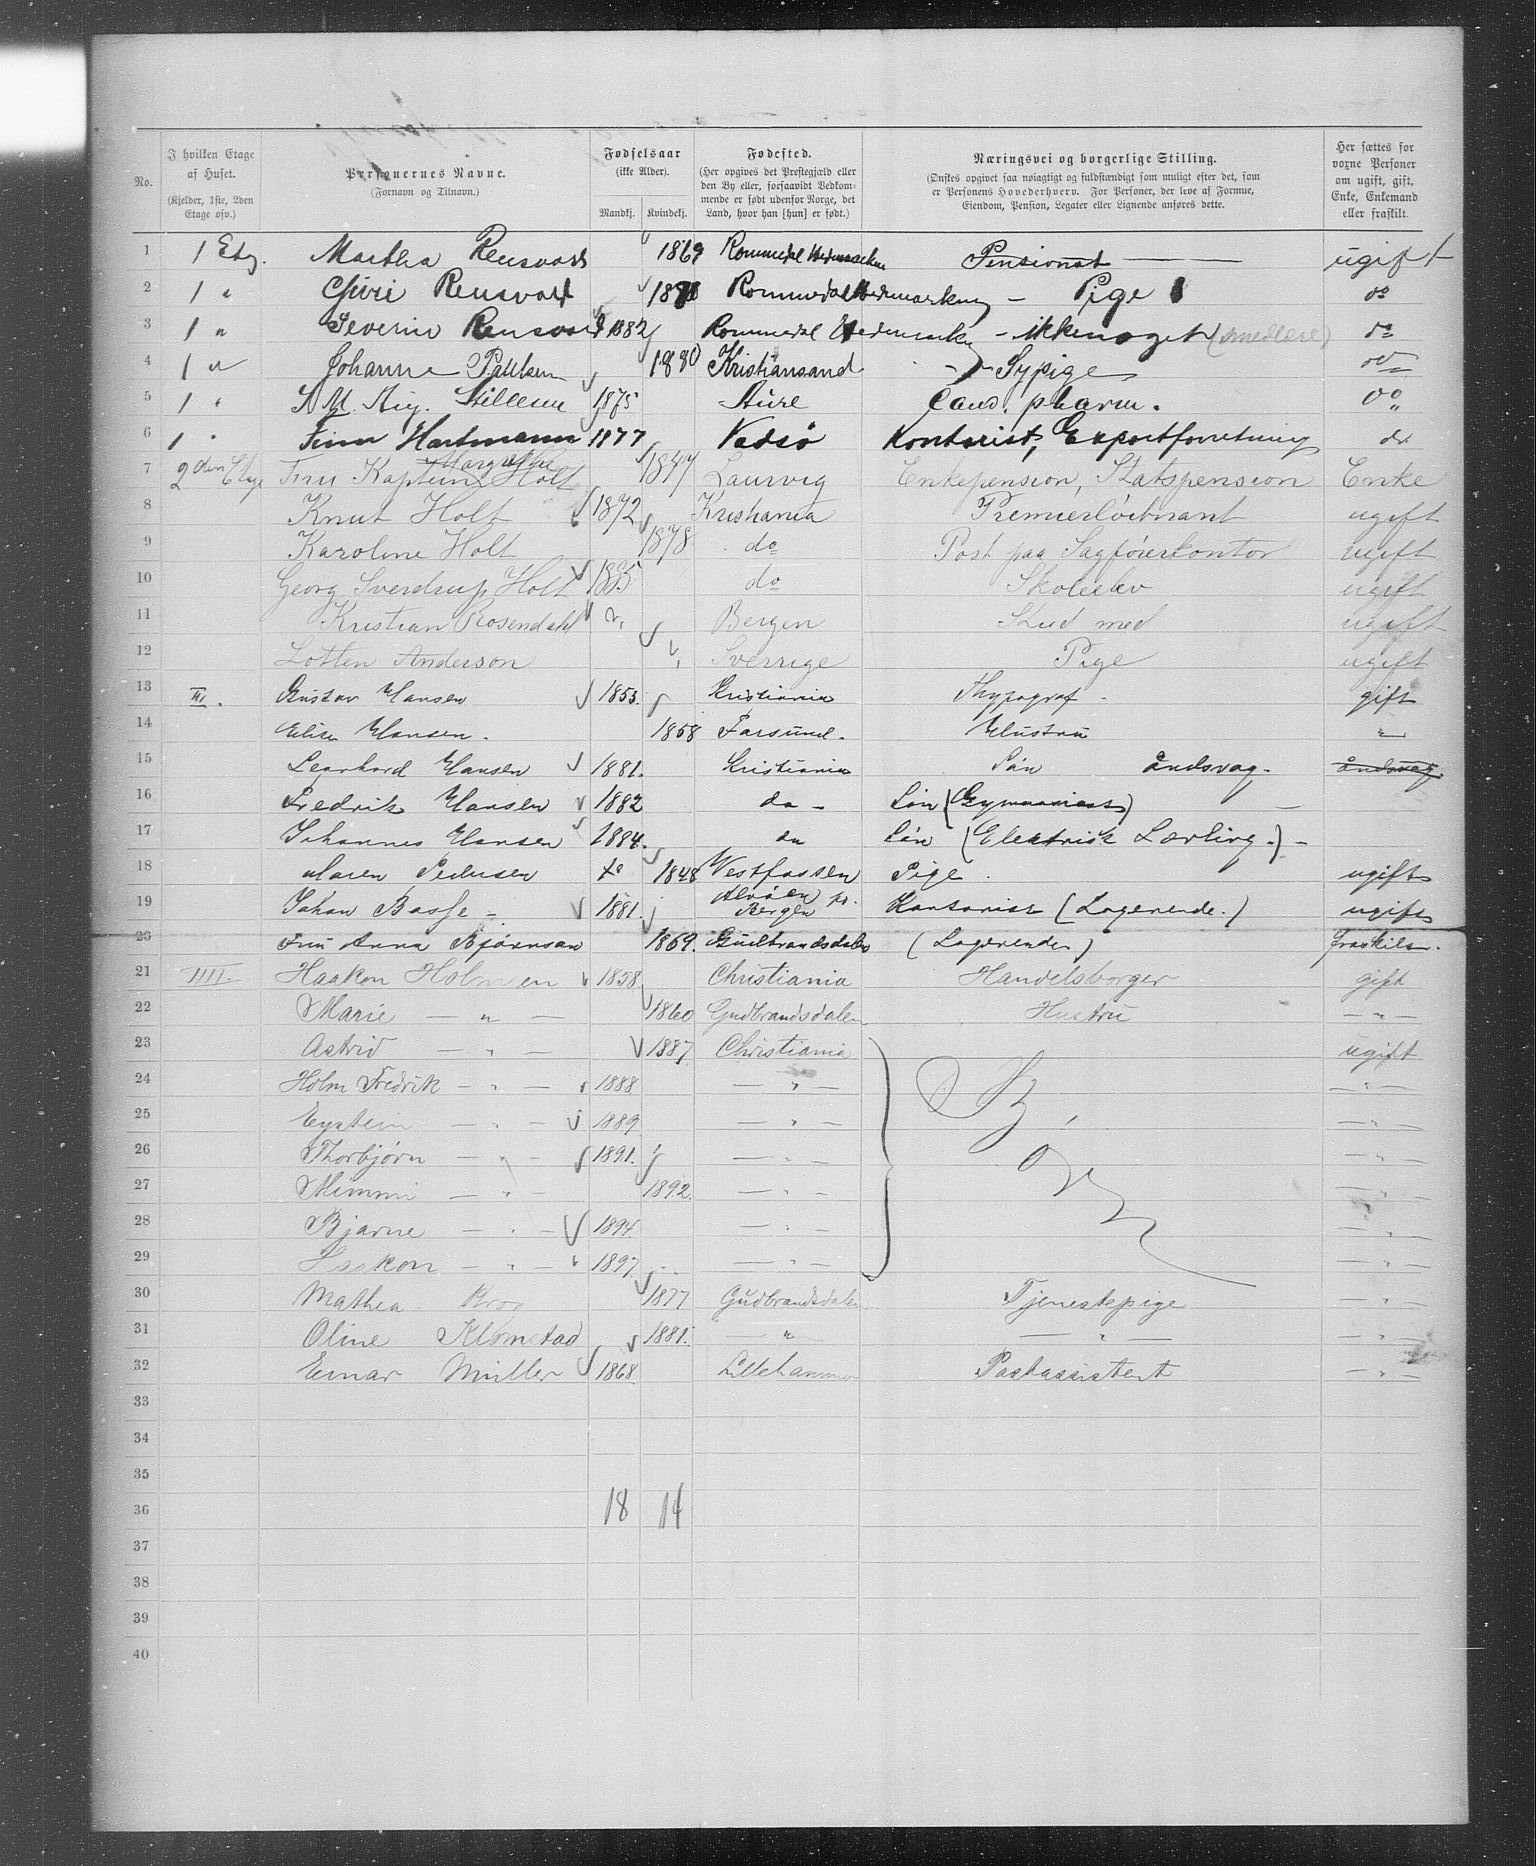 No.
I hvilken Etage af Huset.
(Kjelder, 1ste, 2den Etage osv.)
Personernes Navne.
(Fornavn og Tilnavn.)
Fødselsaar
(ikke Alder).
Mandkj. Kvindekj.
Fødested.
(Her opgives det Prestegjæld eller den By eller, forsaavidt Vedkommende er født udenfor Norge, det Land, hvor han [hun] er født.)
Næringsvei og borgerlige Stilling.
(Ønskes opgivet saa nøiagtigt og fuldstændigt som muligt efter det, som er Personens Hovederhverv. For Personer, der leve af Formue, Eiendom, Pension, Legater eller Lignende anføres dette.
Her sættes for voxne Personer om ugift, gift, Enke, Enkemand eller fraskilt.
1 1 Etg. Martha Rensvord 1869 Rommedal Hedemarken Pensionat — ugift
2 1 " Rensvold Rommedal Hedemarken – Pige do
3 1 " Severin Rensvord 1882 Rommedal Hedemarken – ikke noget do
4 1 " Johanne Paulsen 1880 Kristiansand – Sypige do
5 1 " Aug. 1875 Aure Cand. pharm. do
6 1 " Finn Hartmann 1877 Vadsø Kontorist, Exportforretning do
7 2den Etage Fru Kaptein Margrethe Holt 1847 Laurvig Enkepension, Statspension Enke
8 Knut Holt 1872 Kristiania Premierløitnant ugift
9 Karoline Holt 1878 do Post paa Sagførerkontor ugift
10 Georg Sverdrup Holt 1885 do Skoleelev ugift
11 Kristian Rosendahl Bergen Stud med ugift
12 Lotten Anderson Sverrige Pige ugift
13 III. Gustav Hansen 1853. Kristiania Thypograf gift
14 Elise Hansen. 1858 Farsund. Hustru "
15 Leonhard Hansen 1881. Kristiania Søn åndsvag. åndsvag
16 Fredrik Hansen 1882 do – Søn (Gymnasiast) —
17 Johannes Hansen 1884. do Søn (Elektrisk Lærling.) –
18 Maren Pedersen 1848 Vestfossen Pige. ugift
19 Johan Basse – 1881. Alvøen pr. Bergen Kontorist (Logerende.) ugift
20 Fru Anna Bjørnson 1869. Gudbrandsdalen (Logerende) fraskilt.
21 IIII. Haakon Holmsen 1858 Christiania Handelsborger gift
22 Marie — " — 1860 Gudbrandsdalen Hustru — " —
23 Astrid — " — 1887 Christiania ugift
24 Holm Fredrik — " — 1888 — " — — " —
25 Eystein — " — 1889 — " — — " —
26 Thorbjørn — " — 1891. — " — — " —
27 Mimmi — " — 1892. — " — — " —
28 Bjarne — " — 1894. — " — — " —
29 Haakon — " — 1897 — " — — " —
30 Mathea Krog 1877 Gudbrandsdalen Tjenestepige — " —
31 Oline Klomstad 1881. — " — — " — — " —
32 Einar Müller 1868. Lillehammer Postassistent — " —
33
34
35
36 18 14
37
38
39
40